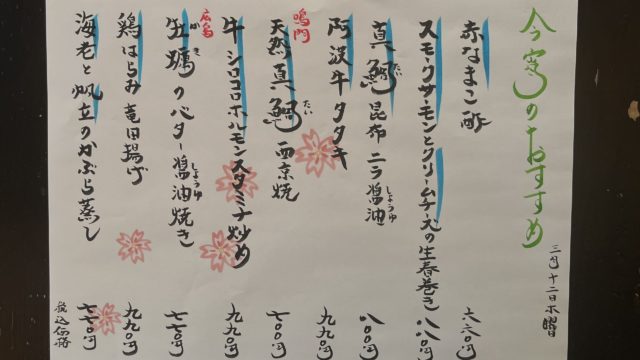 今宵のおすすめ
三月十二日木曜
赤なまこ酢
六六〇円
スモークサーモンとクリームチーズの生春巻き
八八〇円
真鯛昆布ニラ醤油
たい
しょうゆ
八〇〇円
阿波牛タタキ
九九〇円
鳴門
天然真鯛西京焼
たい
七〇〇円
牛シロコロホルモンスタミナ炒め
九九〇円
広島
牡蠣のバター醤油焼き
がき
しょうゆ
七七〇円
鶏はらみ竜田揚げ
九九〇円
海老と帆立のかぶら蒸し
七七〇円
税込価格